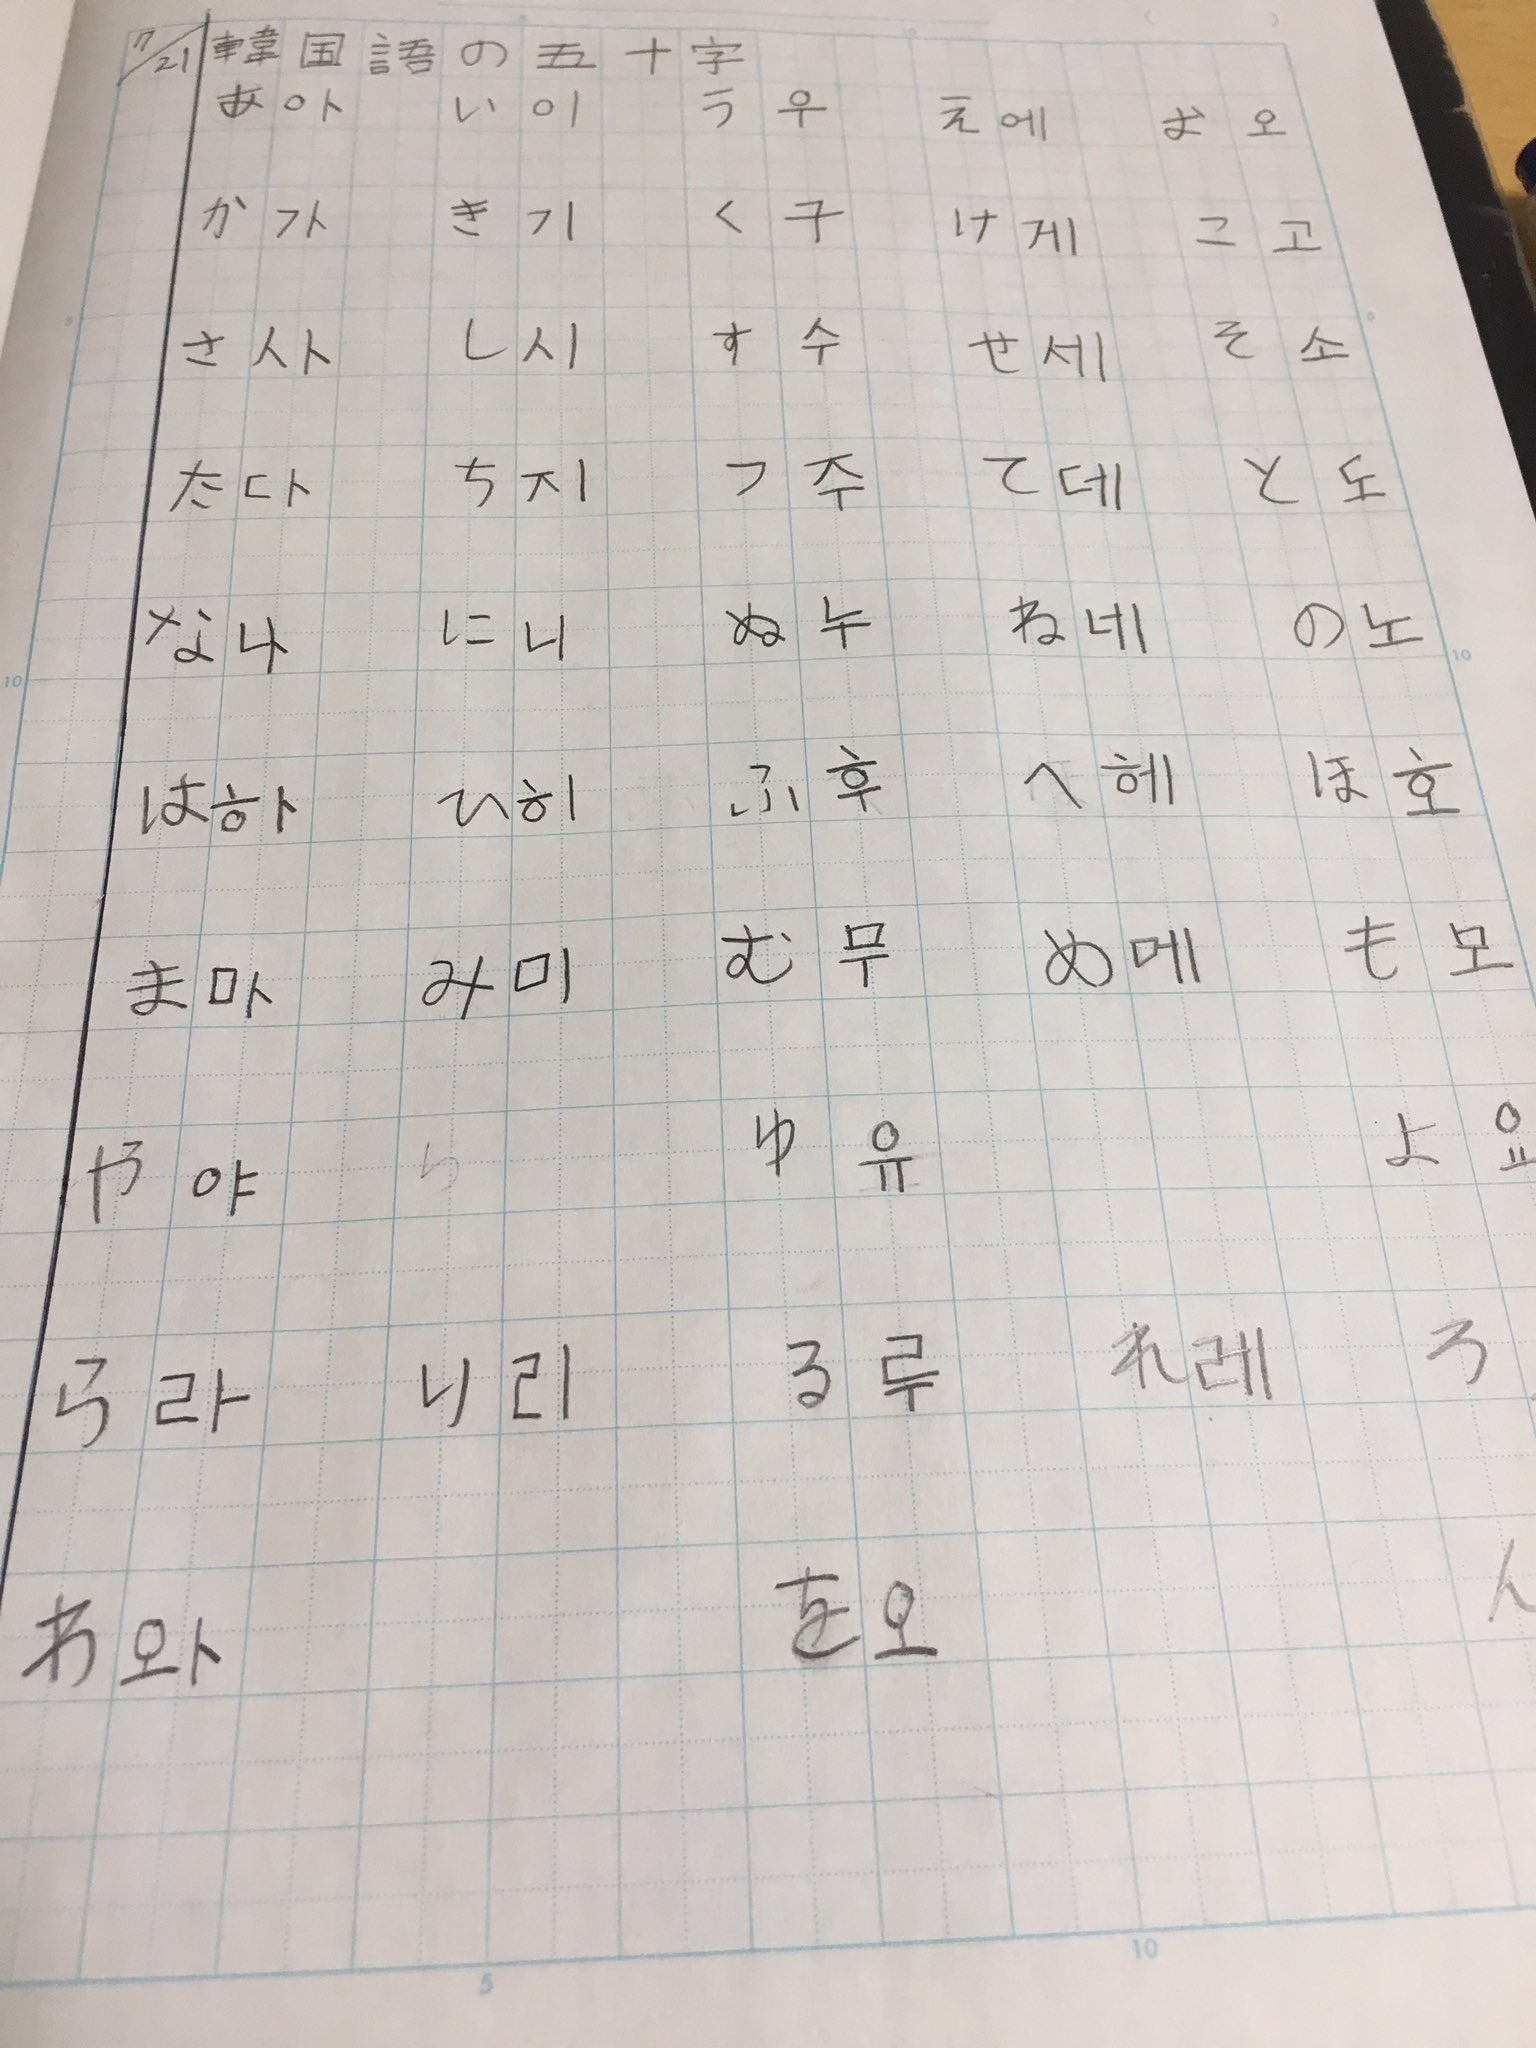 7/21 韓国語の五十字
あ아 い이 う우 え에 お오
か가 き기 く구 け게 こ고
さ사 し시 す수 せ세 そ소
た다 ち지 つ주 て데 と도
な나 に니 ぬ누 ね네 の노
は하 ひ히 ふ후 へ헤 ほ호
ま마 み미 む무 め메 も모
や야 ゆ유 よ요
ら라 り리 る루 れ레 ろ
わ와 を오 ん
5
10
10
10
5